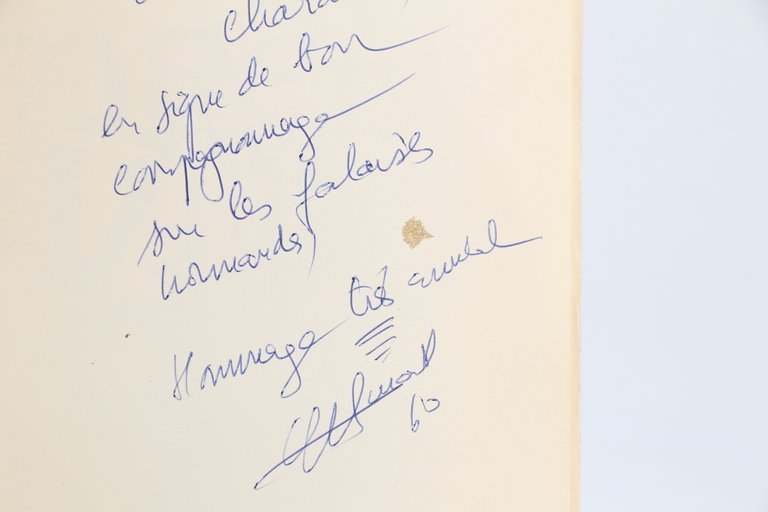 en signe de bon
compagnonnage
sur les falaises
normandes
Hommage très amical
60